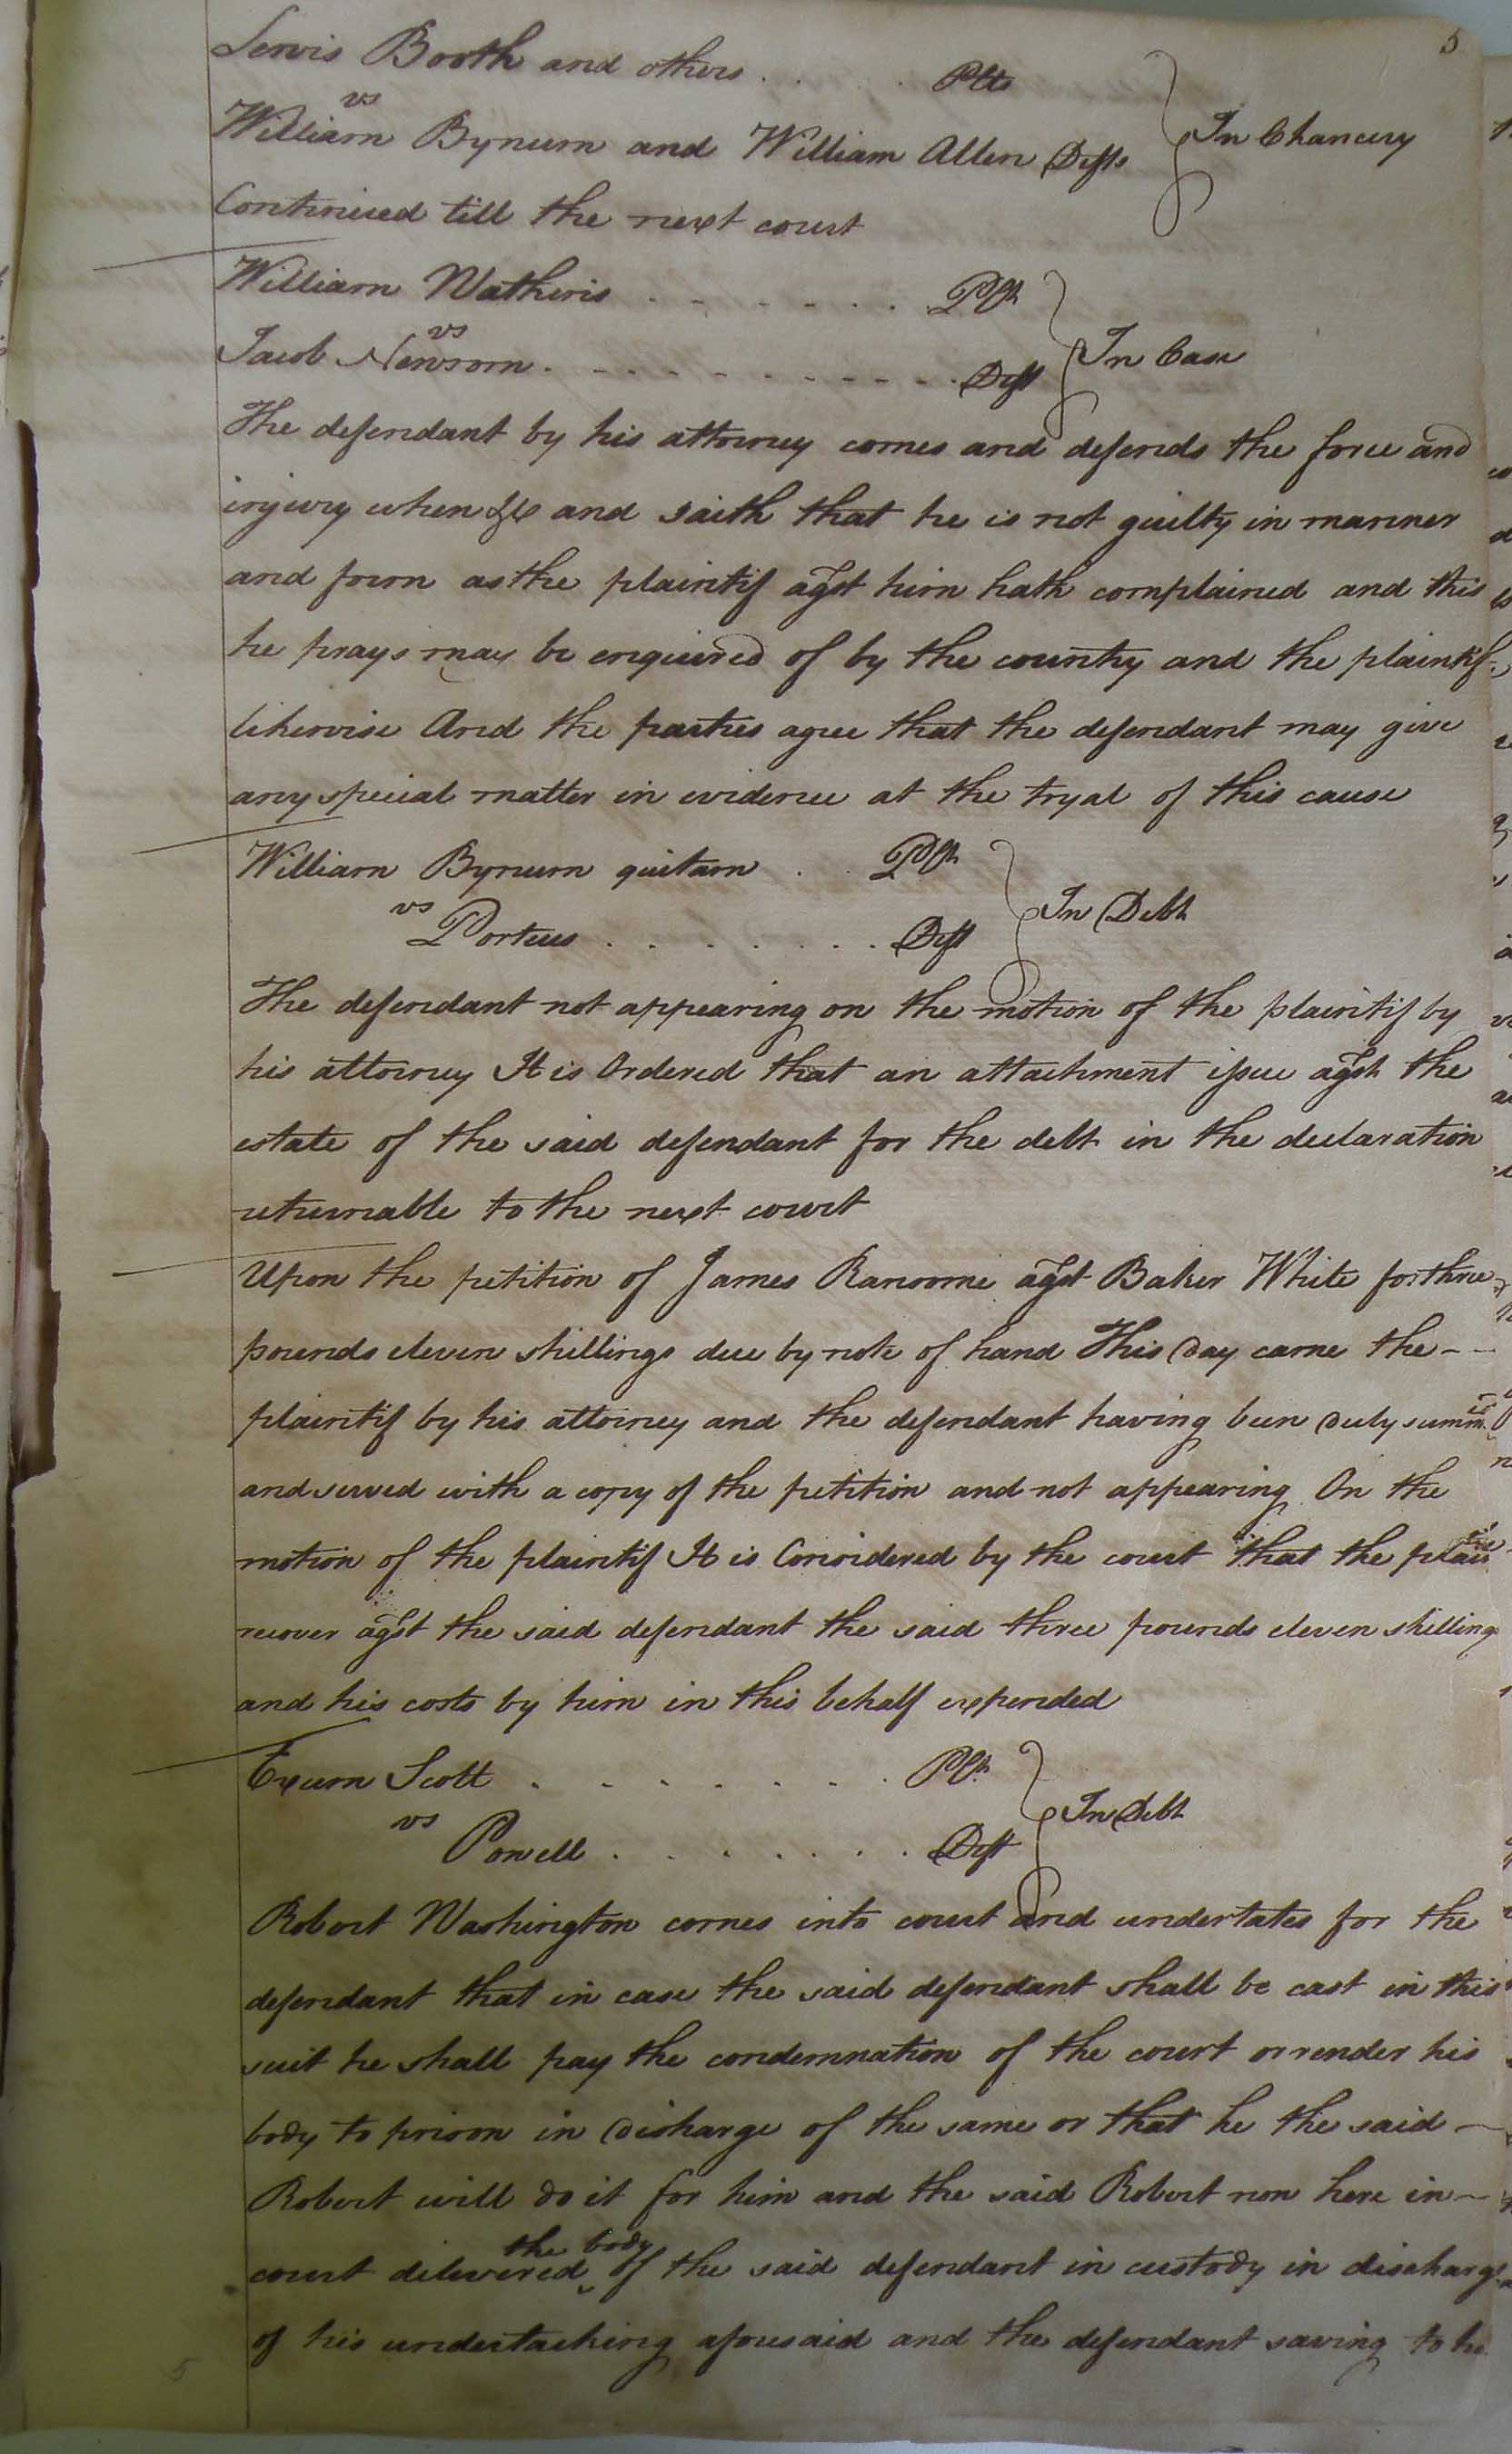 5
Lewis Booth and others . . . Plts
vs
In Chancery
William Bynum and William Allen Defts
Continued till the next court
William Watkins . . . . . . . Plt
vs
In Case
Jacob Newsom . . . . . . . . . . Deft
The defendant by his attorney comes and defends the force and
injury when &c and saith that he is not guilty in manner
and form as the plaintif agst him hath complained and this
he prays may be enquired of by the country and the plaintif
likewise And the parties agree that the defendant may give
any special matter in evidence at the tryal of this cause
William Bynum quitam . . Plt
vs
In Debt
Porteus . . . . . . . Deft
The defendant not appearing on the motion of the plaintif by
his attorney It is Ordered that an attachment issue agst the
estate of the said defendant for the debt in the declaration
returnable to the next court
Upon the petition of James Ransome agst Baker White for three
pounds eleven shillings due by note of hand This day came the - -
plaintif by his attorney and the defendant having been duly summ
and served with a copy of the petition and not appearing On the
motion of the plaintif It is Considered by the court that the plain
recover agst the said defendant the said three pounds eleven shillings
and his costs by him in this behalf expended
Exum Scott . . . . . . . Plt
vs
In Debt
Powell . . . . . . . Deft
Robert Washington comes into court and undertakes for the
defendant that in case the said defendant shall be cast in this
suit he shall pay the condemnation of the court or render his
body to prison in discharge of the same or that he the said -
Robert will do it for him and the said Robert now here in -
the body
court delivered ‸ of the said defendant in custody in discharge
of his undertaking aforesaid and the defendant saving to he
5